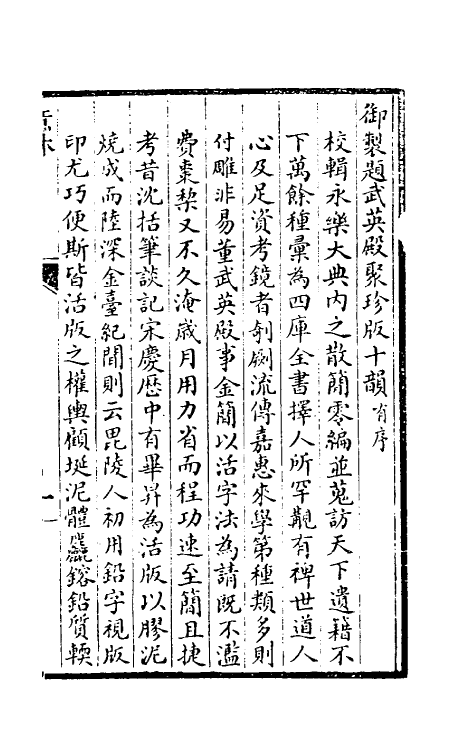 御製題武英殿聚珍版十韻有序
校輯永樂大典內之散簡零編並蒐訪天下遺籍不
下萬餘種彙為四庫全書擇人所罕覯有裨世道人
心及足資考鏡者剞劂流傳嘉惠來學第種類多則
付雕非易董武英殿事金簡以活字法為請既不濫
費棗棃又不久淹歲月用力省而程功速至簡且捷
考昔沈括筆談記宋慶歷中有畢昇為活版以膠泥
燒成而陸深金臺紀聞則云毘陵人初用鉛字視版
印尤巧便斯皆活版之權輿顧埏泥體麤鎔鉛質輭